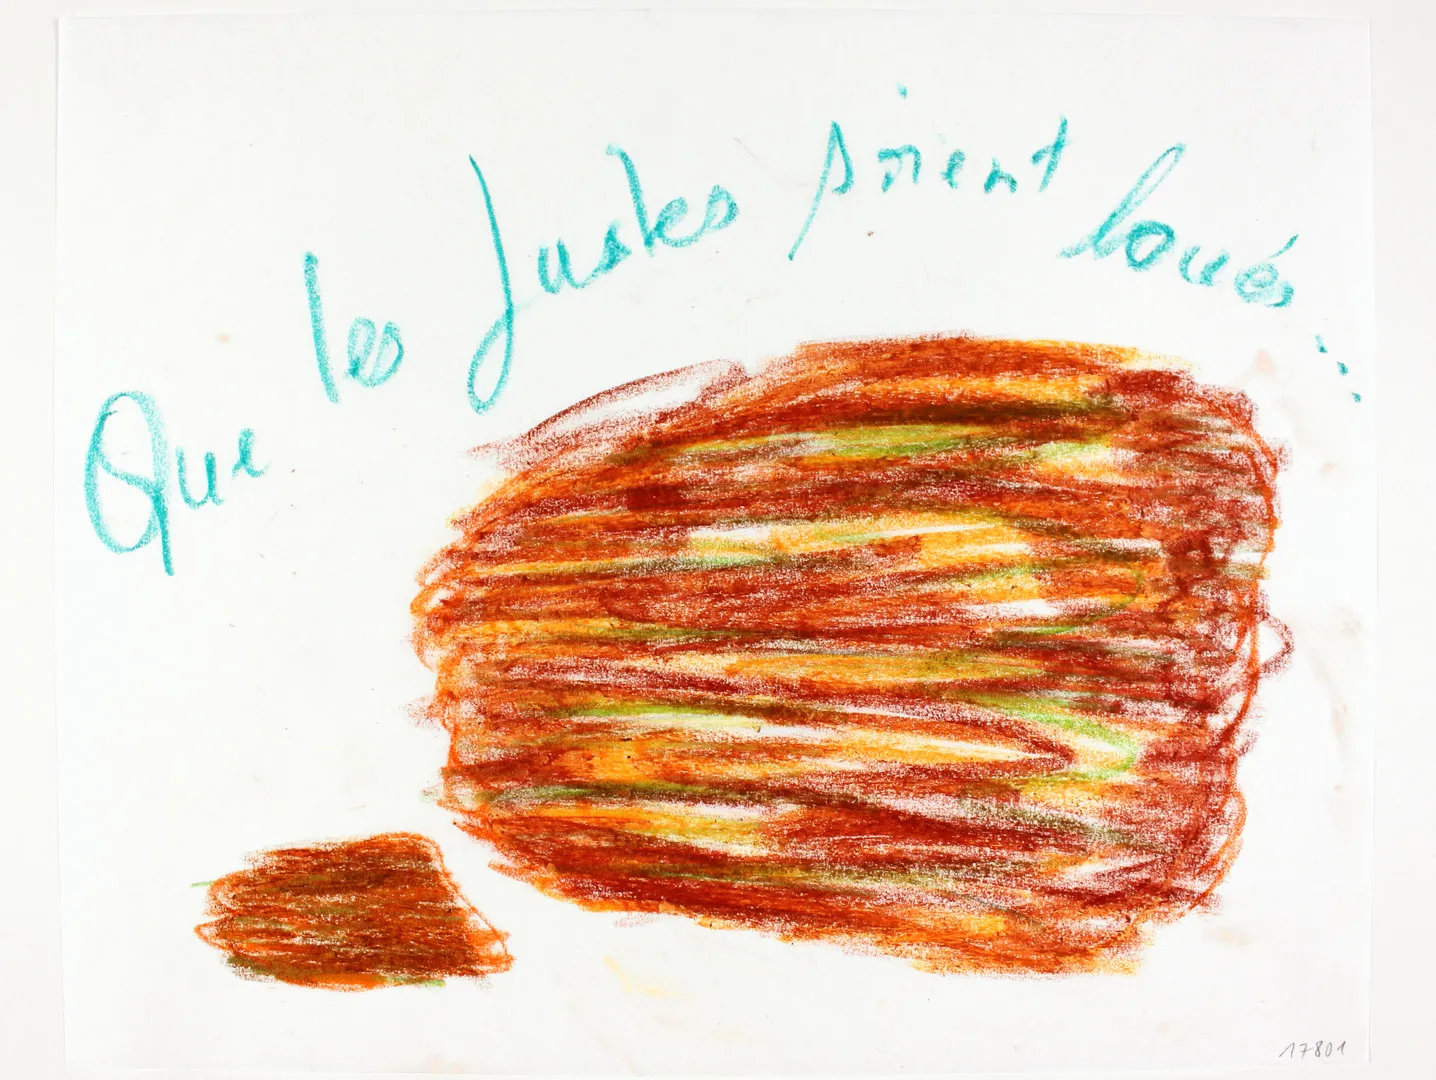 Que les Justes soient loués...
17801